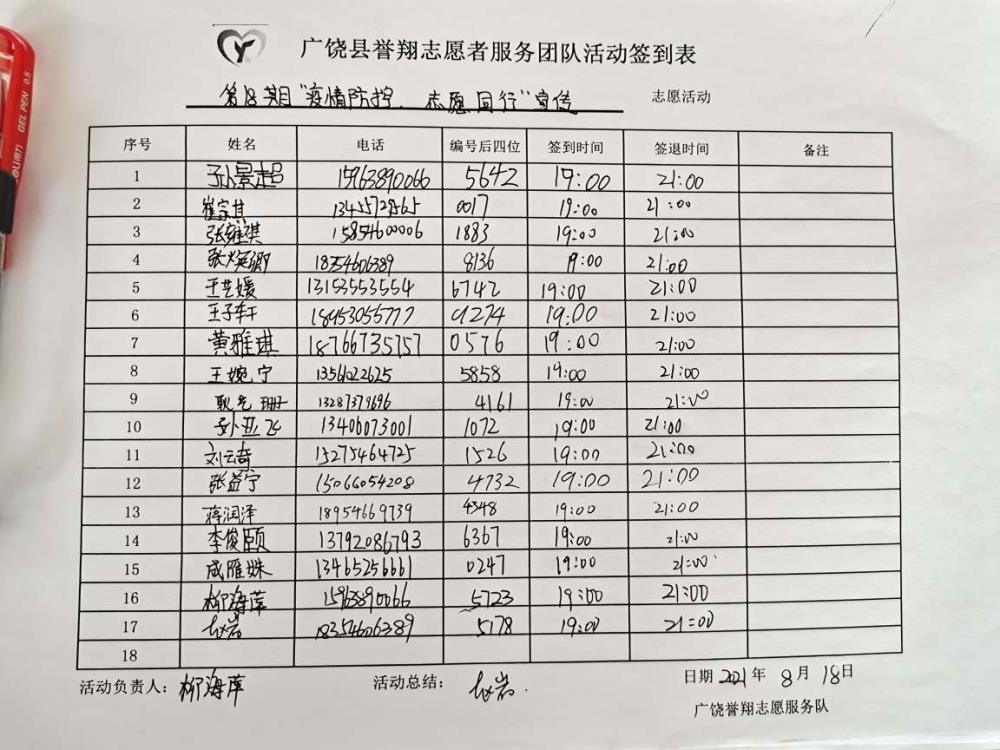 广饶县誉翔志愿者服务团队活动签到表
第18期"疫情防控、志愿同行"宣传 志愿活动
序号 姓名 电话 编号后四位 签到时间 签退时间 备注
1 孙景超 15963890066 5642 19:00 21:00
2 崔宗其 0017 19:00 21:00
3 张雅祺 15854600006 1883 19:00 21:00
4 18354606389 8136 19:00 21:00
5 王艺媛 13153553554 6742 19:00 21:00
6 王子轩 18453055777 19:00 21:00
7 黄雅琪 18766735757 0576 19:00 21:00
8 王婉宁 1356022625 5858 19:00 21:00
9 13287379696 4161 19:00 21:00
10 孙亚飞 13406073001 1072 19:00 21:00
11 刘云奇 13275464725 1526 19:00 21:00
12 张益宁 15066054208 4732 19:00 21:00
13 蒋润泽 18954669739 4348 19:00 21:00
14 李俊颐 13792086793 6367 19:00 21:00
15 咸雁姝 13465256661 0247 19:00 21:00
16 柳海萍 15963890066 5723 19:00 21:00
17 赵岩 18354606389 5178 19:00 21:00
18
活动负责人：柳海萍 活动总结：赵岩. 日期 2021年 8月 18日
广饶誉翔志愿服务队
GEL PEN 0.5